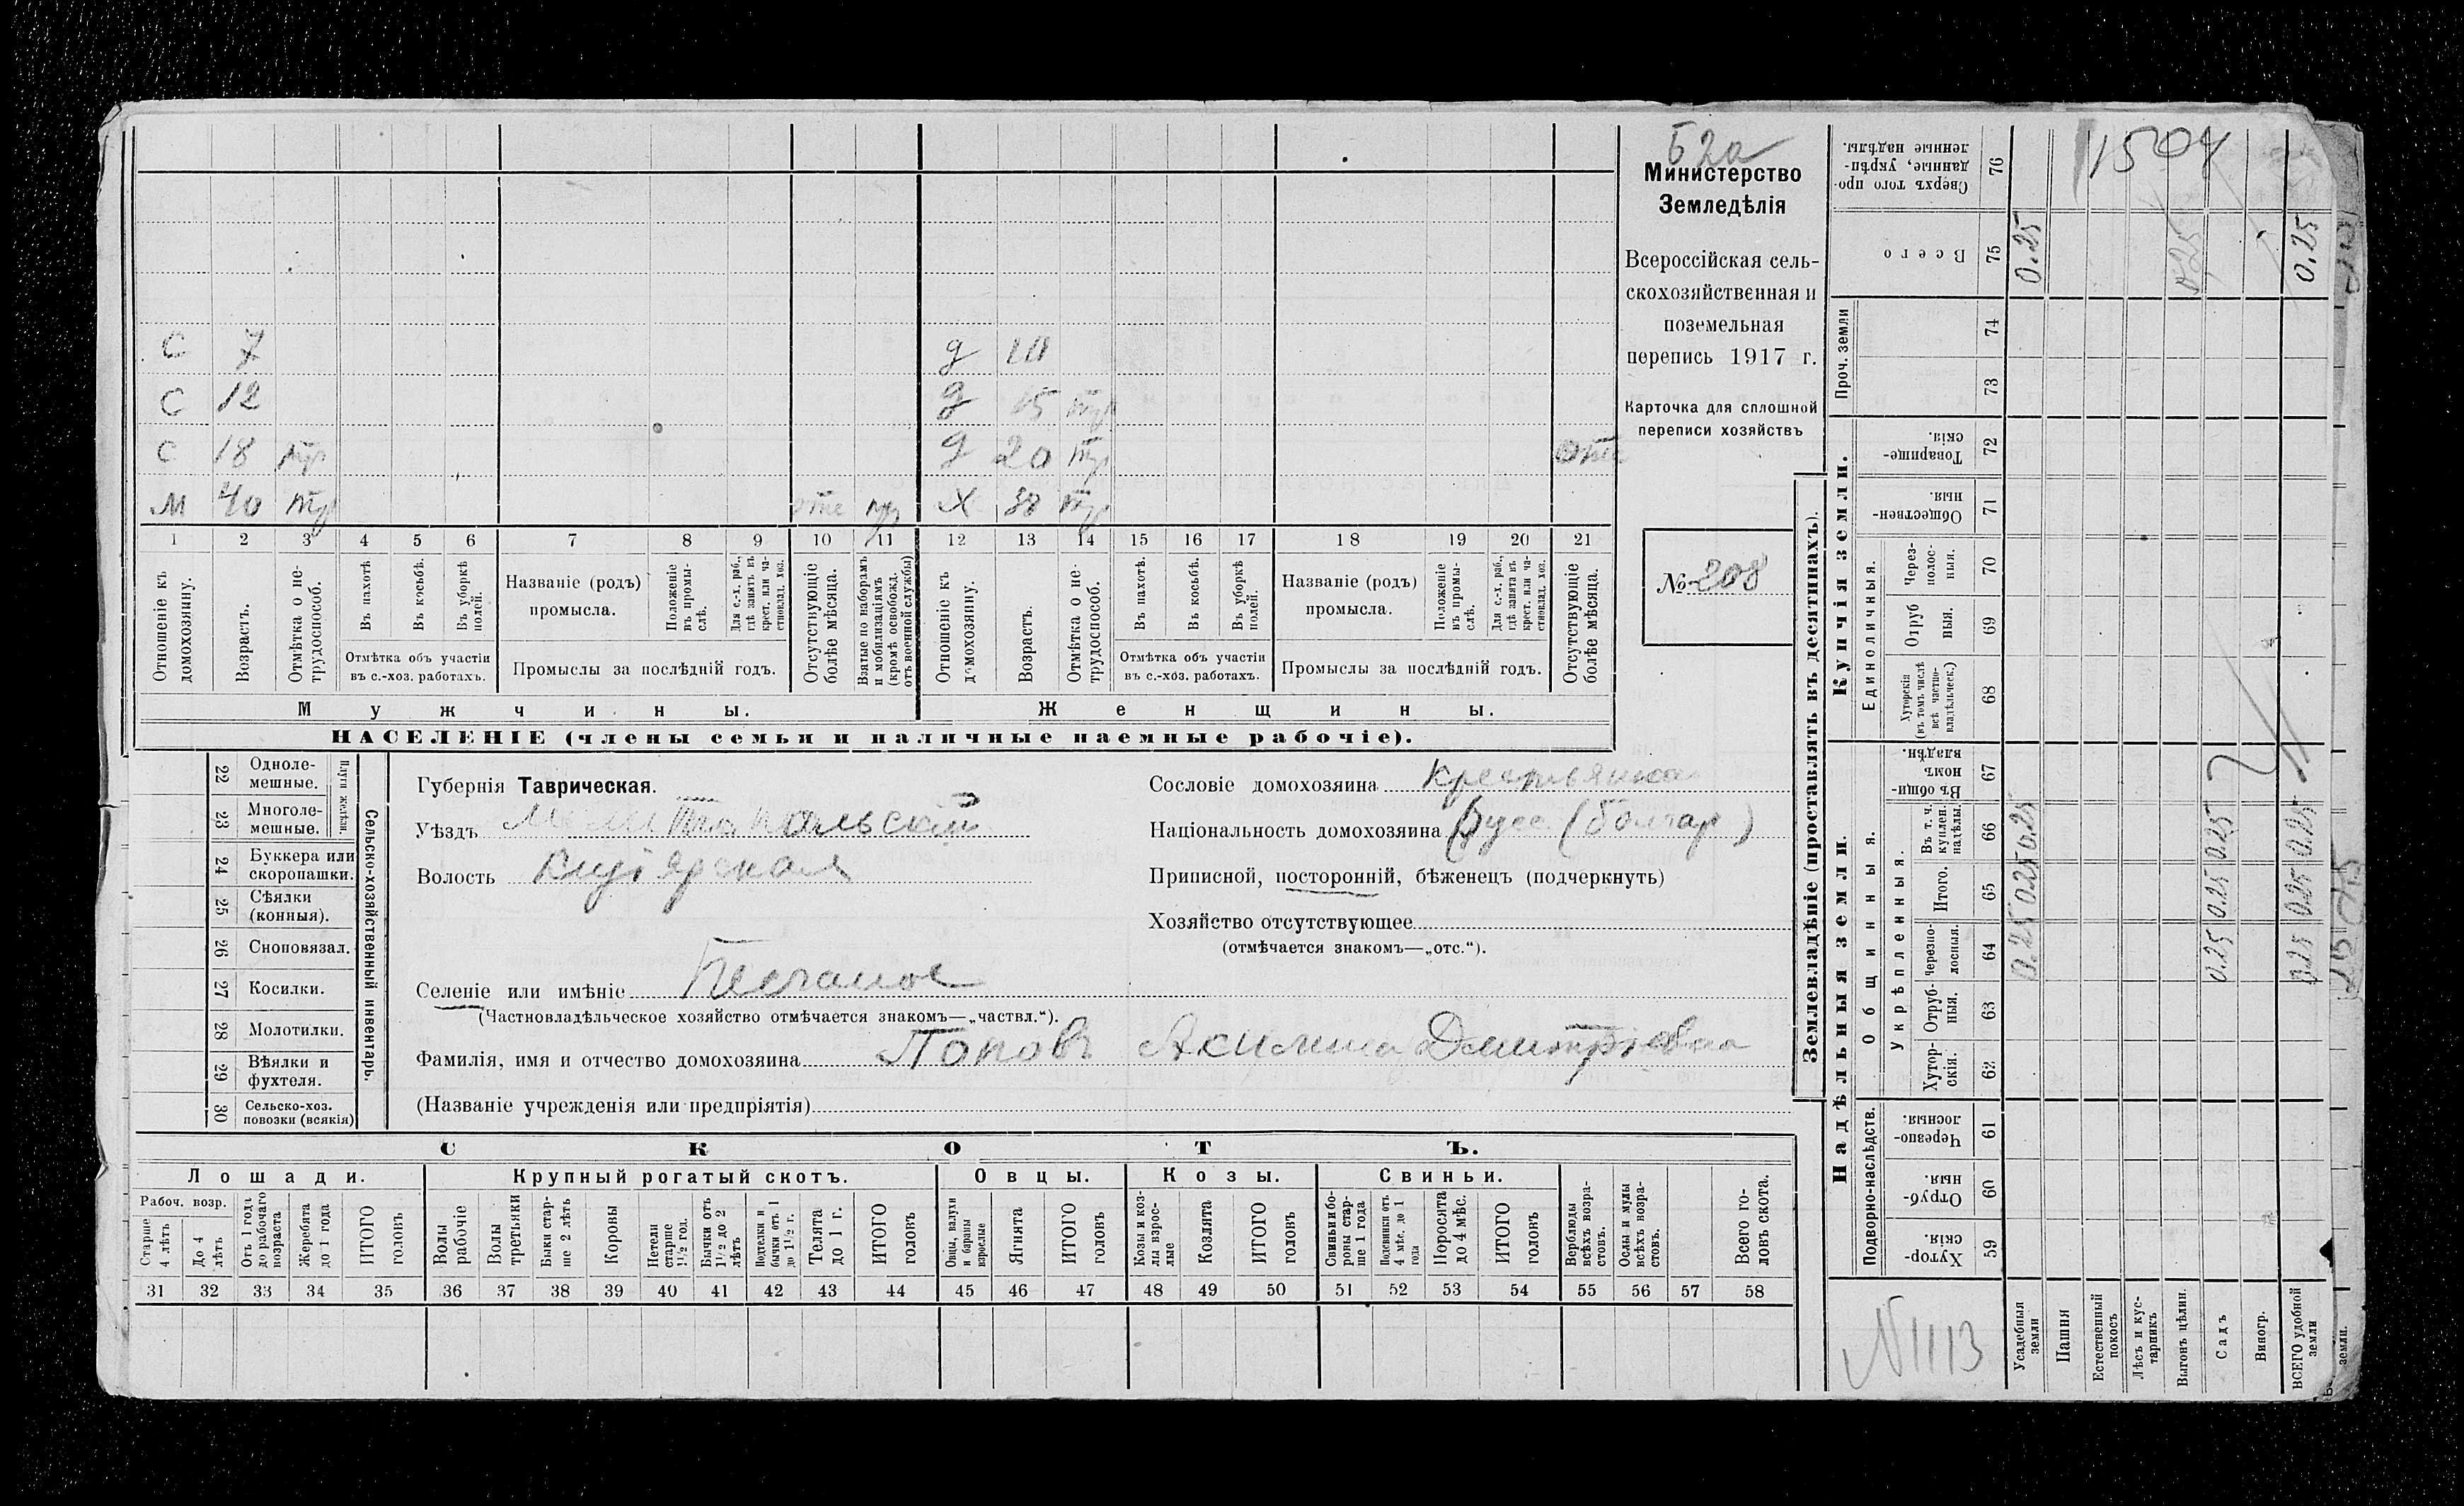 С 7 д 10
С 12 д 15 тр
С 18 тр д 20 тр отс
М 40 тр отс Х 38 тр
1 2 3 4 5 6 7 8 9 10 11 12 13 14 15 16 17 18 19 20 21
Отношеніе къ домохозяину.
Возрастъ.
Отмѣтка о не-трудоспособ.
Въ пахотѣ
Въ косьбѣ.
Въ уборкѣ полей.
Отмѣтка объ участіи въ с.-хоз. работахъ.
Названіе (родъ) промысла.
Положеніе въ промы-слѣ.
Для с.-х. раб., гдѣ занятъ въ крест. или ча-стновлад. хоз.
Промыслы за послѣдній годъ.
Отсутствующіе болѣе мѣсяца.
Взятые по наборамъ и мобилизаціямъ (кромѣ освобожд. отъ военной службы)
Отношеніе къ домохозяину.
Возрастъ.
Отмѣтка о не-трудоспособ.
Въ пахотѣ.
Въ косьбѣ.
Въ уборкѣ полей.
Отмѣтка объ участіи въ с.-хоз. работахъ.
Названіе (родъ) промысла.
Положеніе въ промы-слѣ.
Для с.-х. раб., гдѣ занята въ крест. или ча-стновлад. хоз.
Промыслы за послѣдній годъ.
Отсутствующіе болѣе мѣсяца.
Мужчины. Женщины.
НАСЕЛЕНІЕ (члены семьи и наличные наемные рабочіе).
52а
Министерство
Земледѣлія
Всероссійская сель-
скохозяйственная и
поземельная
перепись 1917 г.
Карточка для сплошной
переписи хозяйствъ
№ 208
22 Одноле-мешные.
23 Многоле-мешные.
Плуги желѣзн.
24 Буккера или скоропашки.
25 Сѣялки (конныя).
26 Сноповязал.
27 Косилки.
28 Молотилки.
29 Вѣялки и фухтеля.
30 Сельско-хоз. повозки (всякія)
Сельско-хозяйственный инвентарь.
Губернія Таврическая.
Уѣздъ Мелитопольскій
Волость
Сословіе домохозяина крестьянка
Національность домохозяина Русс. (болгар)
Приписной, посторонній, бѣженецъ (подчеркнуть)
Хозяйство отсутствующее
(отмѣчается знакомъ—„отс.“).
Селеніе или имѣніе
(Частновладѣльческое хозяйство отмѣчается знакомъ—„частвл.“).
Фамилія, имя и отчество домохозяина Поповъ Акулина Дмитріевна
(Названіе учрежденія или предпріятія)
СКОТЪ.
Лошади. Крупный рогатый скотъ. Овцы. Козы. Свиньи.
Рабоч. возр.
Старше 4 лѣтъ
До 4 лѣтъ
Отъ 1 года до рабочаго возраста
Жеребята до 1 года
ИТОГО головъ
Волы рабочіе
Волы третьяки
Быки стар-ше 2 лѣтъ
Коровы
Нетели старше 1½ год.
Бычки отъ 1½ до 2 лѣтъ
Подтелки и бычки отъ 1 до 1½ г.
Телята до 1 г.
ИТОГО головъ
Овцы, валухи и бараны взрослые
Ягнята
ИТОГО головъ
Козы и коз-лы взрос-лые
Козлята
ИТОГО головъ
Свиньи и бо-ровы стар-ше 1 года
Подсвинки отъ 4 мѣс. до 1 года
Поросята до 4 мѣс.
ИТОГО головъ
Верблюды всѣхъ возра-стовъ.
Ослы и мулы всѣхъ возра-стовъ.
Всего го-ловъ скота.
31 32 33 34 35 36 37 38 39 40 41 42 43 44 45 46 47 48 49 50 51 52 53 54 55 56 57 58
Землевладѣніе (проставлять въ десятинахъ).
Надѣльныя земли. Купчія земли. Проч. земли
Подворно-наслѣдств.
Общинныя.
Укрѣпленныя.
Единоличныя.
Хутор-скія. 59
Отруб-ныя. 60
Черезпо-лосныя. 61
Хутор-скія. 62
Отруб-ныя. 63
Черезпо-лосныя. 64
Итого. 65
Въ т. ч. куплен. надѣлы. 66
Въ общи-номъ владѣн. 67
Хуторскія (въ томъ числѣ всѣ частно-владѣльческ.) 68
Отрубныя. 69
Через-полос-ныя. 70
Обществен-ныя. 71
Товарище-скія. 72
73
74
Всего 75
Сверхъ того про-данные, укрѣп-ленные надѣлы. 76
1504
N 1113
Усадебныя земли 0.25 0.25 0.25 0.25
Пашня
Естественный покосъ
Лѣсъ и кус-тарникъ
Выгонъ цѣлин. 0.25
Садъ 0.25 0.25 0.25
Виногр.
ВСЕГО удобной земли 0.25 0.25 0.25 0.25
земли.